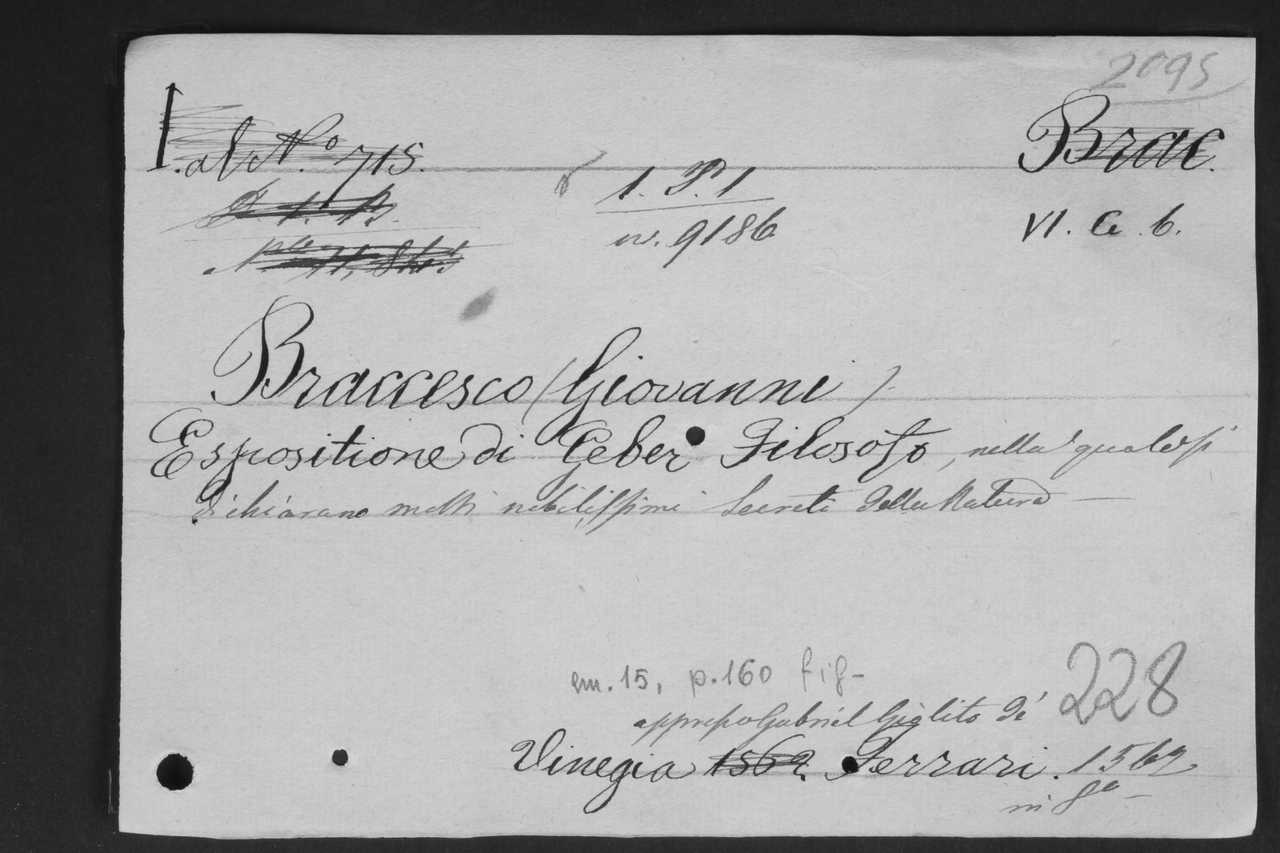 2095
Brac.
I. al N.º 715.
1. P. 1
n. 9186
VI. G. 6.
Braccesco (Giovanni)
Espositione di Geber Filosofo, nella quale si
dichiarano molti nobilissimi Secreti della Natura
cm. 15, p. 160 fig.
228
appresso Gabriel Giolito de'
Vinegia 1562. Ferrari. 1562
in 8º